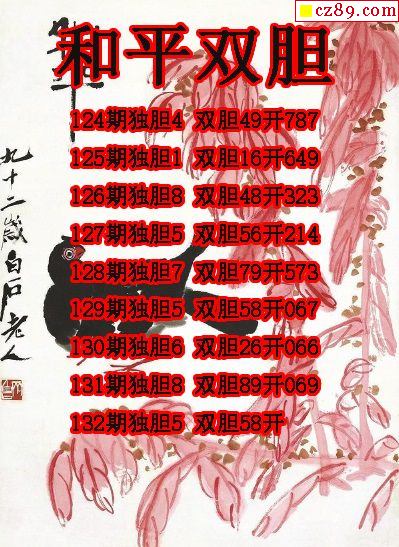 cz89.com
和平双胆
124期独胆4 双胆49开787
125期独胆1 双胆16开649
126期独胆8 双胆48开323
127期独胆5 双胆56开214
128期独胆7 双胆79开573
129期独胆5 双胆58开067
130期独胆6 双胆26开066
131期独胆8 双胆89开069
132期独胆5 双胆58开
九十二歲白石老人